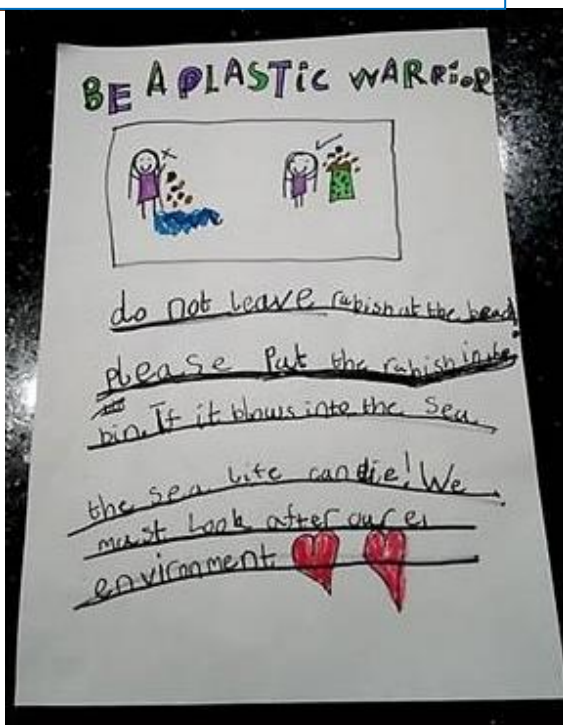 BE A PLASTIC WARRIOR
do not leave rubish at the beach!
please Put the rubish in the
bin. If it blows into the sea
the sea life can die! We
must look after oure
environment